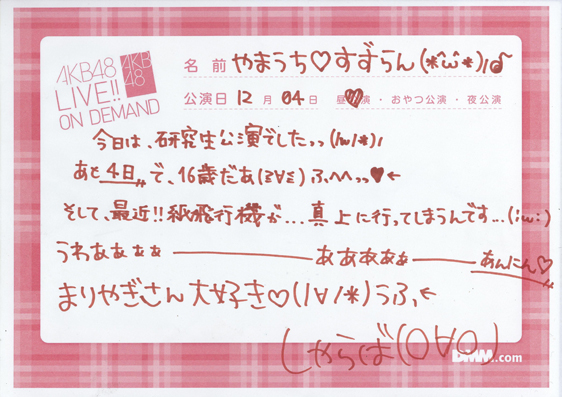 AKB48
LIVE!!
ON DEMAND
AKB
48
名前 やまうち♡すずらん(*^ω^*)ノ♪
公演日 12月04日 昼公演・おやつ公演・夜公演
今日は、研究生公演でしたっっ(/ω/*)ノ
あと4日〃で、16歳だあ(≧∀≦)ふへへっっ♥←
そして、最近!!紙飛行機が...真上に行ってしまうんです...(;ω;)
うわぁぁぁぁ――――ああああぁ――あんにん♡〃
まりやぎさん大好き♡(/∀/*)うふっ←
しゃらば(0∀0)
DMM.com